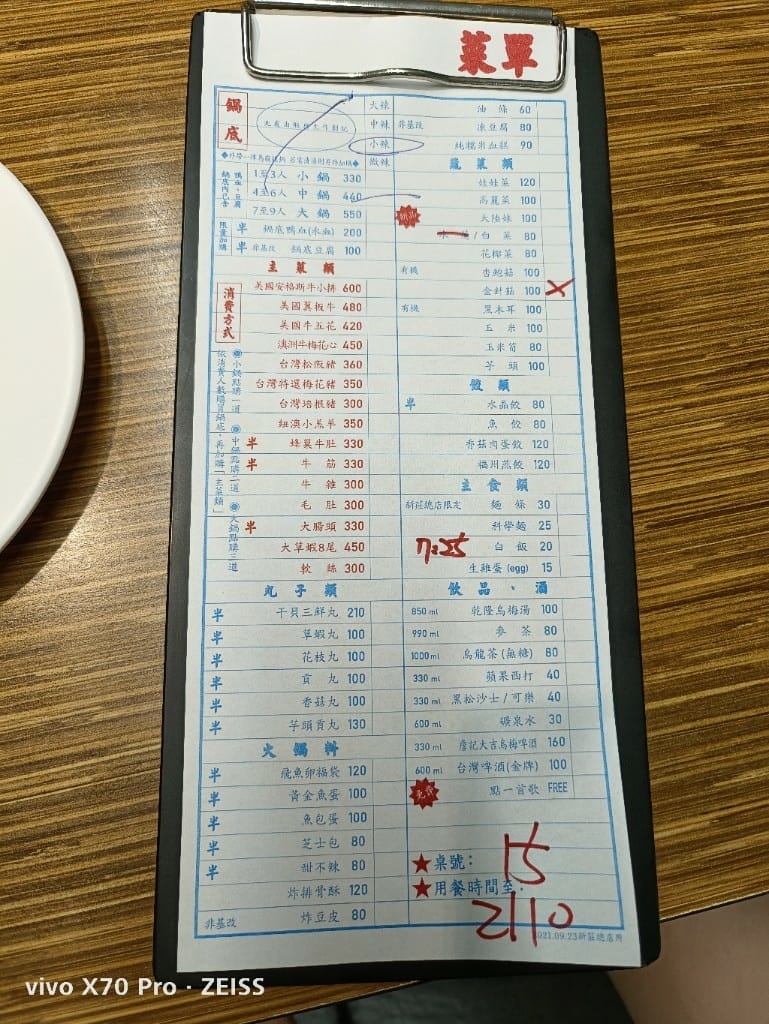 菜單
鍋底
大辣
中辣
小辣
微辣
1至3人 小鍋 330
4至6人 中鍋 440
7至9人 大鍋 550
鍋內已含 鴨血、豆腐
限量加購
半 鍋底鴨血(水血) 200
半 非基改 鍋底豆腐 100
主菜類
消費方式
依消費人數購買鍋底，再加購「主菜類」
◉小鍋點購一道 ◉中鍋點購二道 ◉大鍋點購三道
美國安格斯牛小排 600
美國翼板牛 480
美國牛五花 420
澳洲牛梅花心 450
台灣松阪豬 360
台灣特選梅花豬 350
台灣培根豬 300
紐澳小羔羊 350
半 蜂巢牛肚 330
半 牛筋 330
牛雜 300
毛肚 300
半 大腸頭 330
大草蝦8尾 450
軟絲 300
丸子類
半 干貝三鮮丸 210
半 草蝦丸 100
半 花枝丸 100
半 貢丸 100
半 香菇丸 100
半 芋頭貢丸 130
火鍋料
半 飛魚卵福袋 120
半 黃金魚蛋 100
半 魚包蛋 100
半 芝士包 80
半 甜不辣 80
炸排骨酥 120
非基改 炸豆皮 80
油條 60
非基改 凍豆腐 80
純糯米血糕 90
蔬菜類
娃娃菜 120
高麗菜 100
大陸妹 100
/白菜 80
花椰菜 80
有機 杏鮑菇 100
金針菇 100 X
有機 黑木耳 100
玉米 100
玉米筍 80
芋頭 100
餃類
半 水晶餃 80
魚餃 80
香菇肉蛋餃 120
福州燕餃 120
主食類
新莊總店限定 麵條 30
科學麵 25
7:25
白飯 20
生雞蛋(egg) 15
飲品、酒
850 ml 乾隆烏梅湯 100
990 ml 麥茶 80
1000 ml 烏龍茶(無糖) 80
330 ml 蘋果西打 40
330 ml 黑松沙士/可樂 40
600 ml 礦泉水 30
330 ml 詹記大吉烏梅啤酒 160
600 ml 台灣啤酒(金牌) 100
點一首歌 FREE
★桌號： 15
★用餐時間至：
2110
2021.09.23新莊總店用
vivo X70 Pro · ZEISS